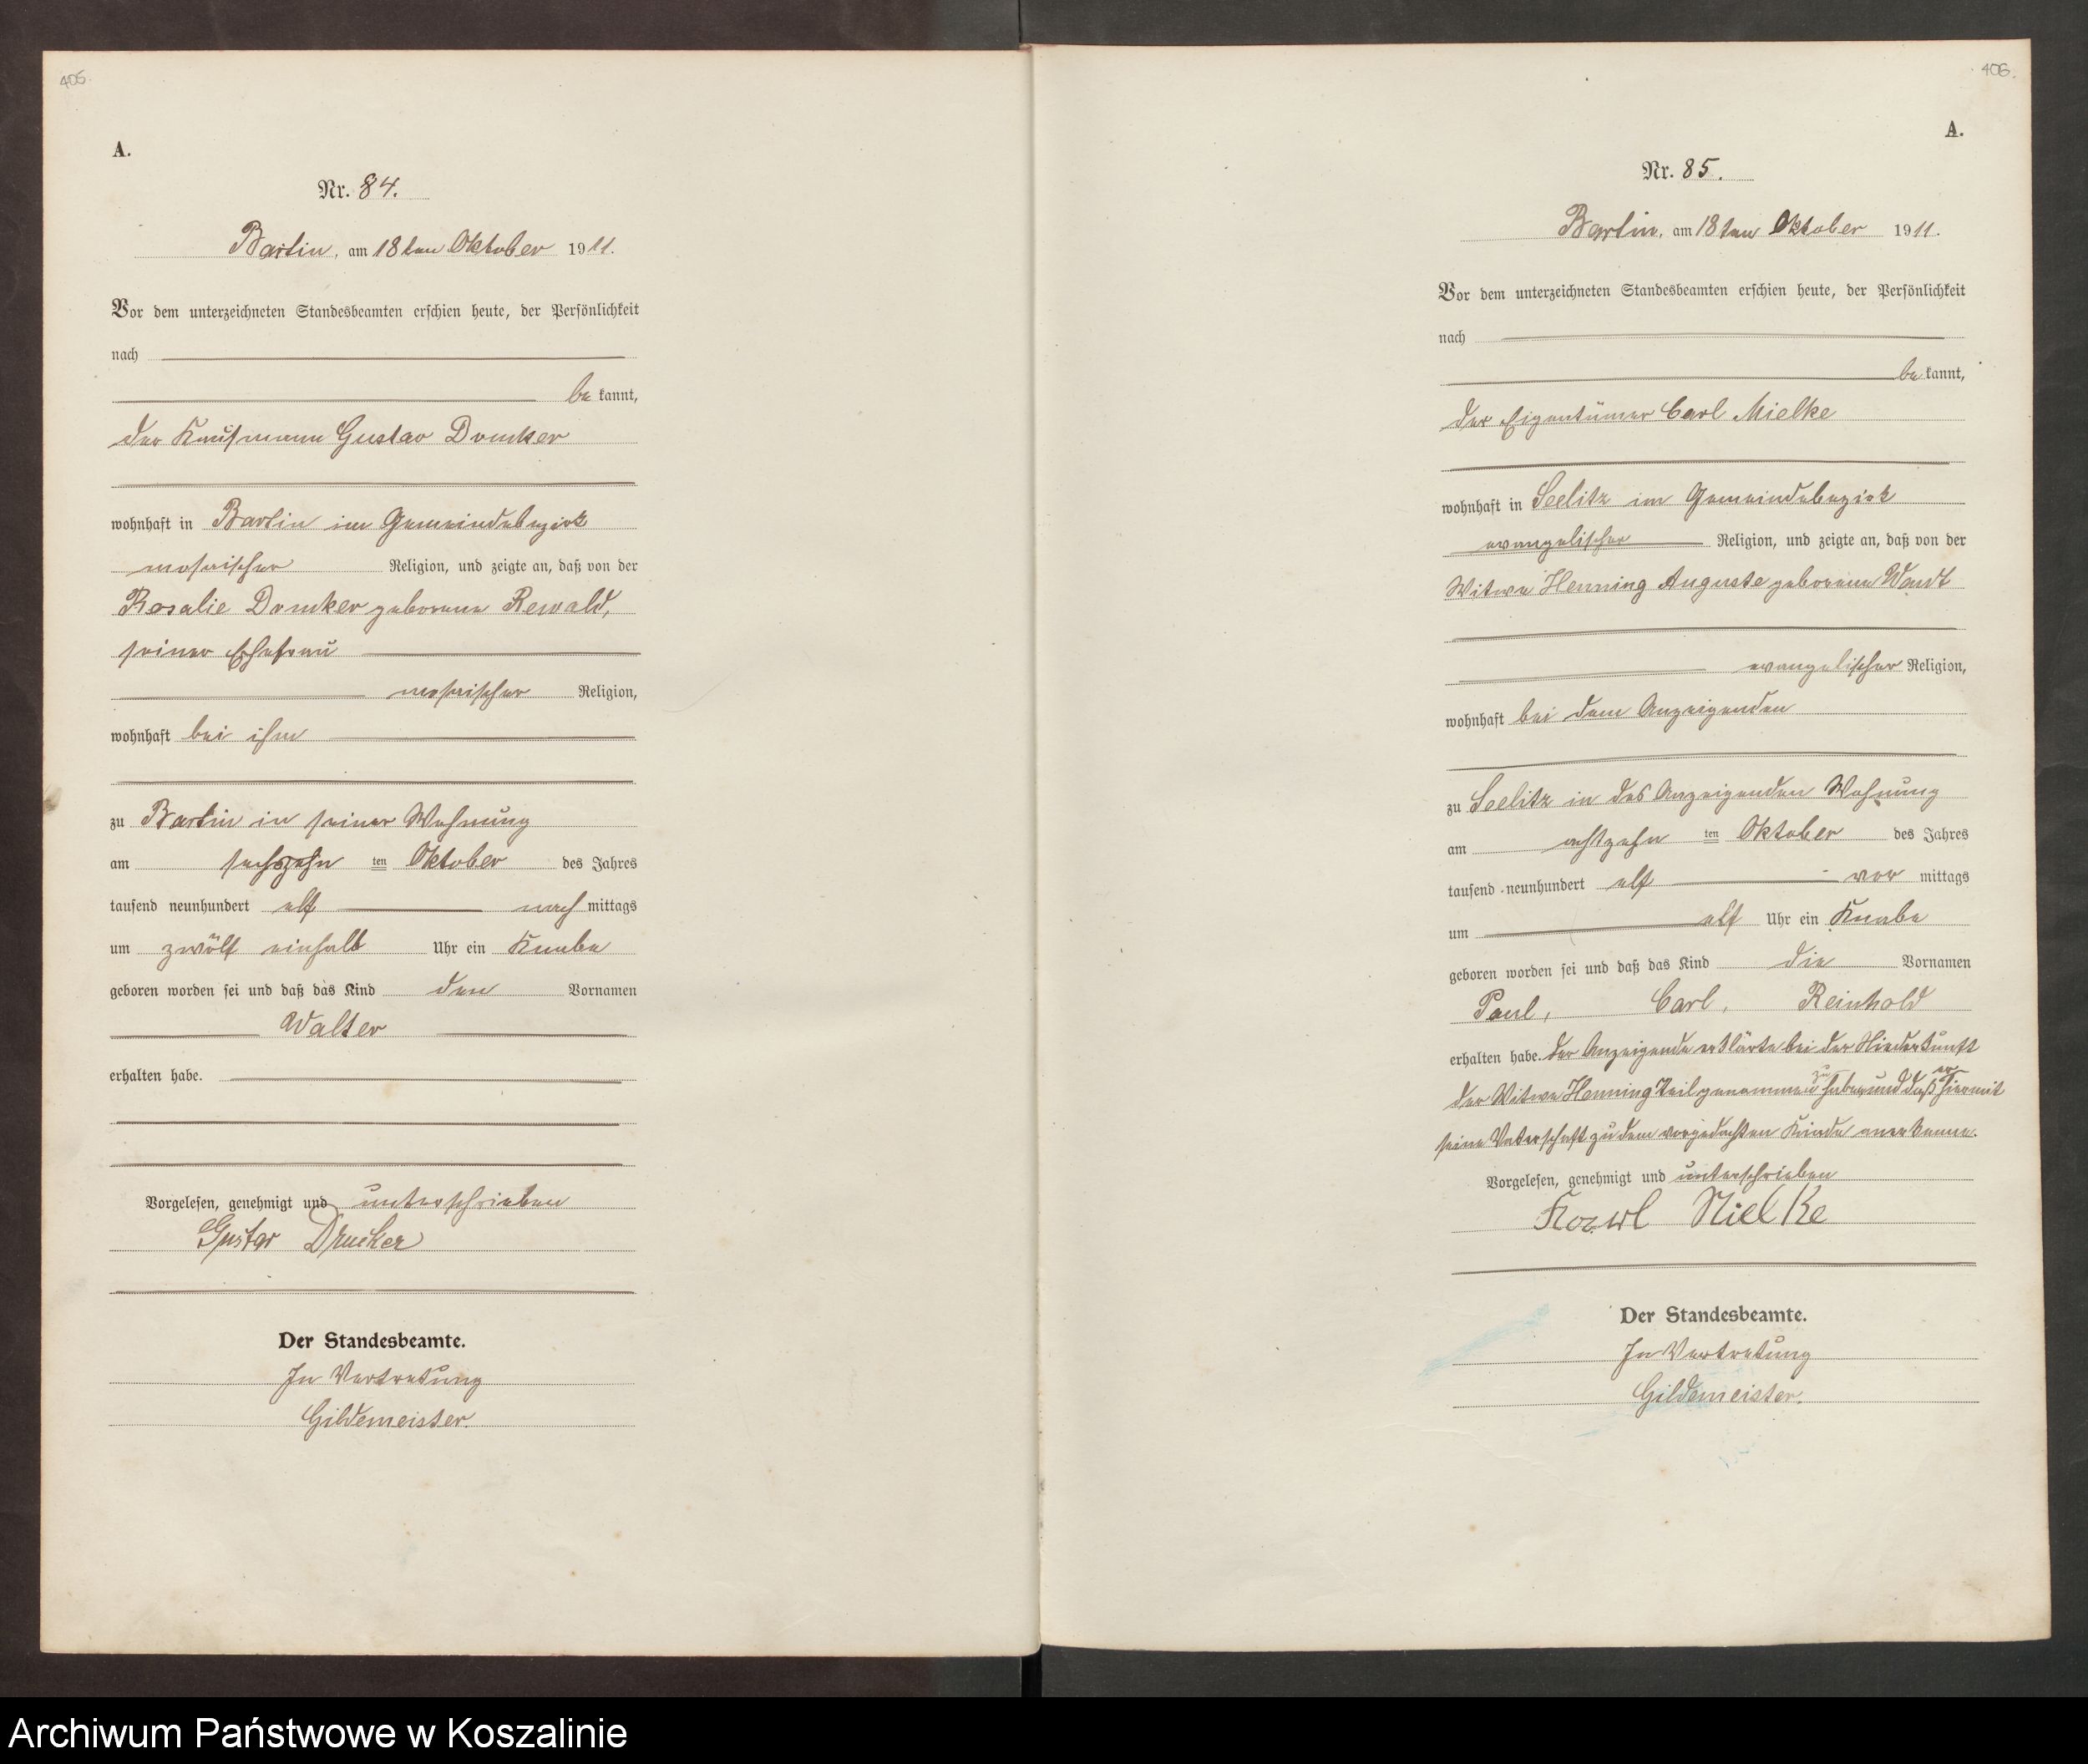 405.
A.
Nr. 84.
Bartin, am 18ten Oktober 1911.
Vor dem unterzeichneten Standesbeamten erschien heute, der Persönlichkeit
nach
be kannt,
der Kaufmann Gustav Drucker
wohnhaft in Bartin im Gemeindebezirk
mosaischer Religion, und zeigte an, daß von der
Rosalie Drucker geborene Rewald,
seiner Ehefrau
mosaischer Religion,
wohnhaft bei ihm
zu Bartin in seiner Wohnung
am sechszehn ten Oktober des Jahres
tausend neunhundert elf nach mittags
um zwölf einhalb Uhr ein Knabe
geboren worden sei und daß das Kind den Vornamen
Walter
erhalten habe.
Vorgelesen, genehmigt und unterschrieben
Gustav Drucker
Der Standesbeamte.
In Vertretung
Gildemeister.
406.
A.
Nr. 85.
Bartin, am 18ten Oktober 1911.
Vor dem unterzeichneten Standesbeamten erschien heute, der Persönlichkeit
nach
be kannt,
der Eigentümer Carl Mielke
wohnhaft in Seelitz im Gemeindebezirk
evangelischer Religion, und zeigte an, daß von der
Witwe Henning Auguste geborene Wendt
evangelischer Religion,
wohnhaft bei dem Anzeigenden
zu Seelitz in des Anzeigenden Wohnung
am achtzehn ten Oktober des Jahres
tausend neunhundert elf vor mittags
um elf Uhr ein Knabe
geboren worden sei und daß das Kind die Vornamen
Paul, Carl, Reinhold
erhalten habe. Der Anzeigende erklärte bei der Niederkunft
der Witwe Henning Teil genommen zu haben und daß er hiermit
seine Vaterschaft zu dem vorgedachten Kinde anerkenne.
Vorgelesen, genehmigt und unterschrieben
Mielke
Der Standesbeamte.
In Vertretung
Gildemeister.
Archiwum Państwowe w Koszalinie